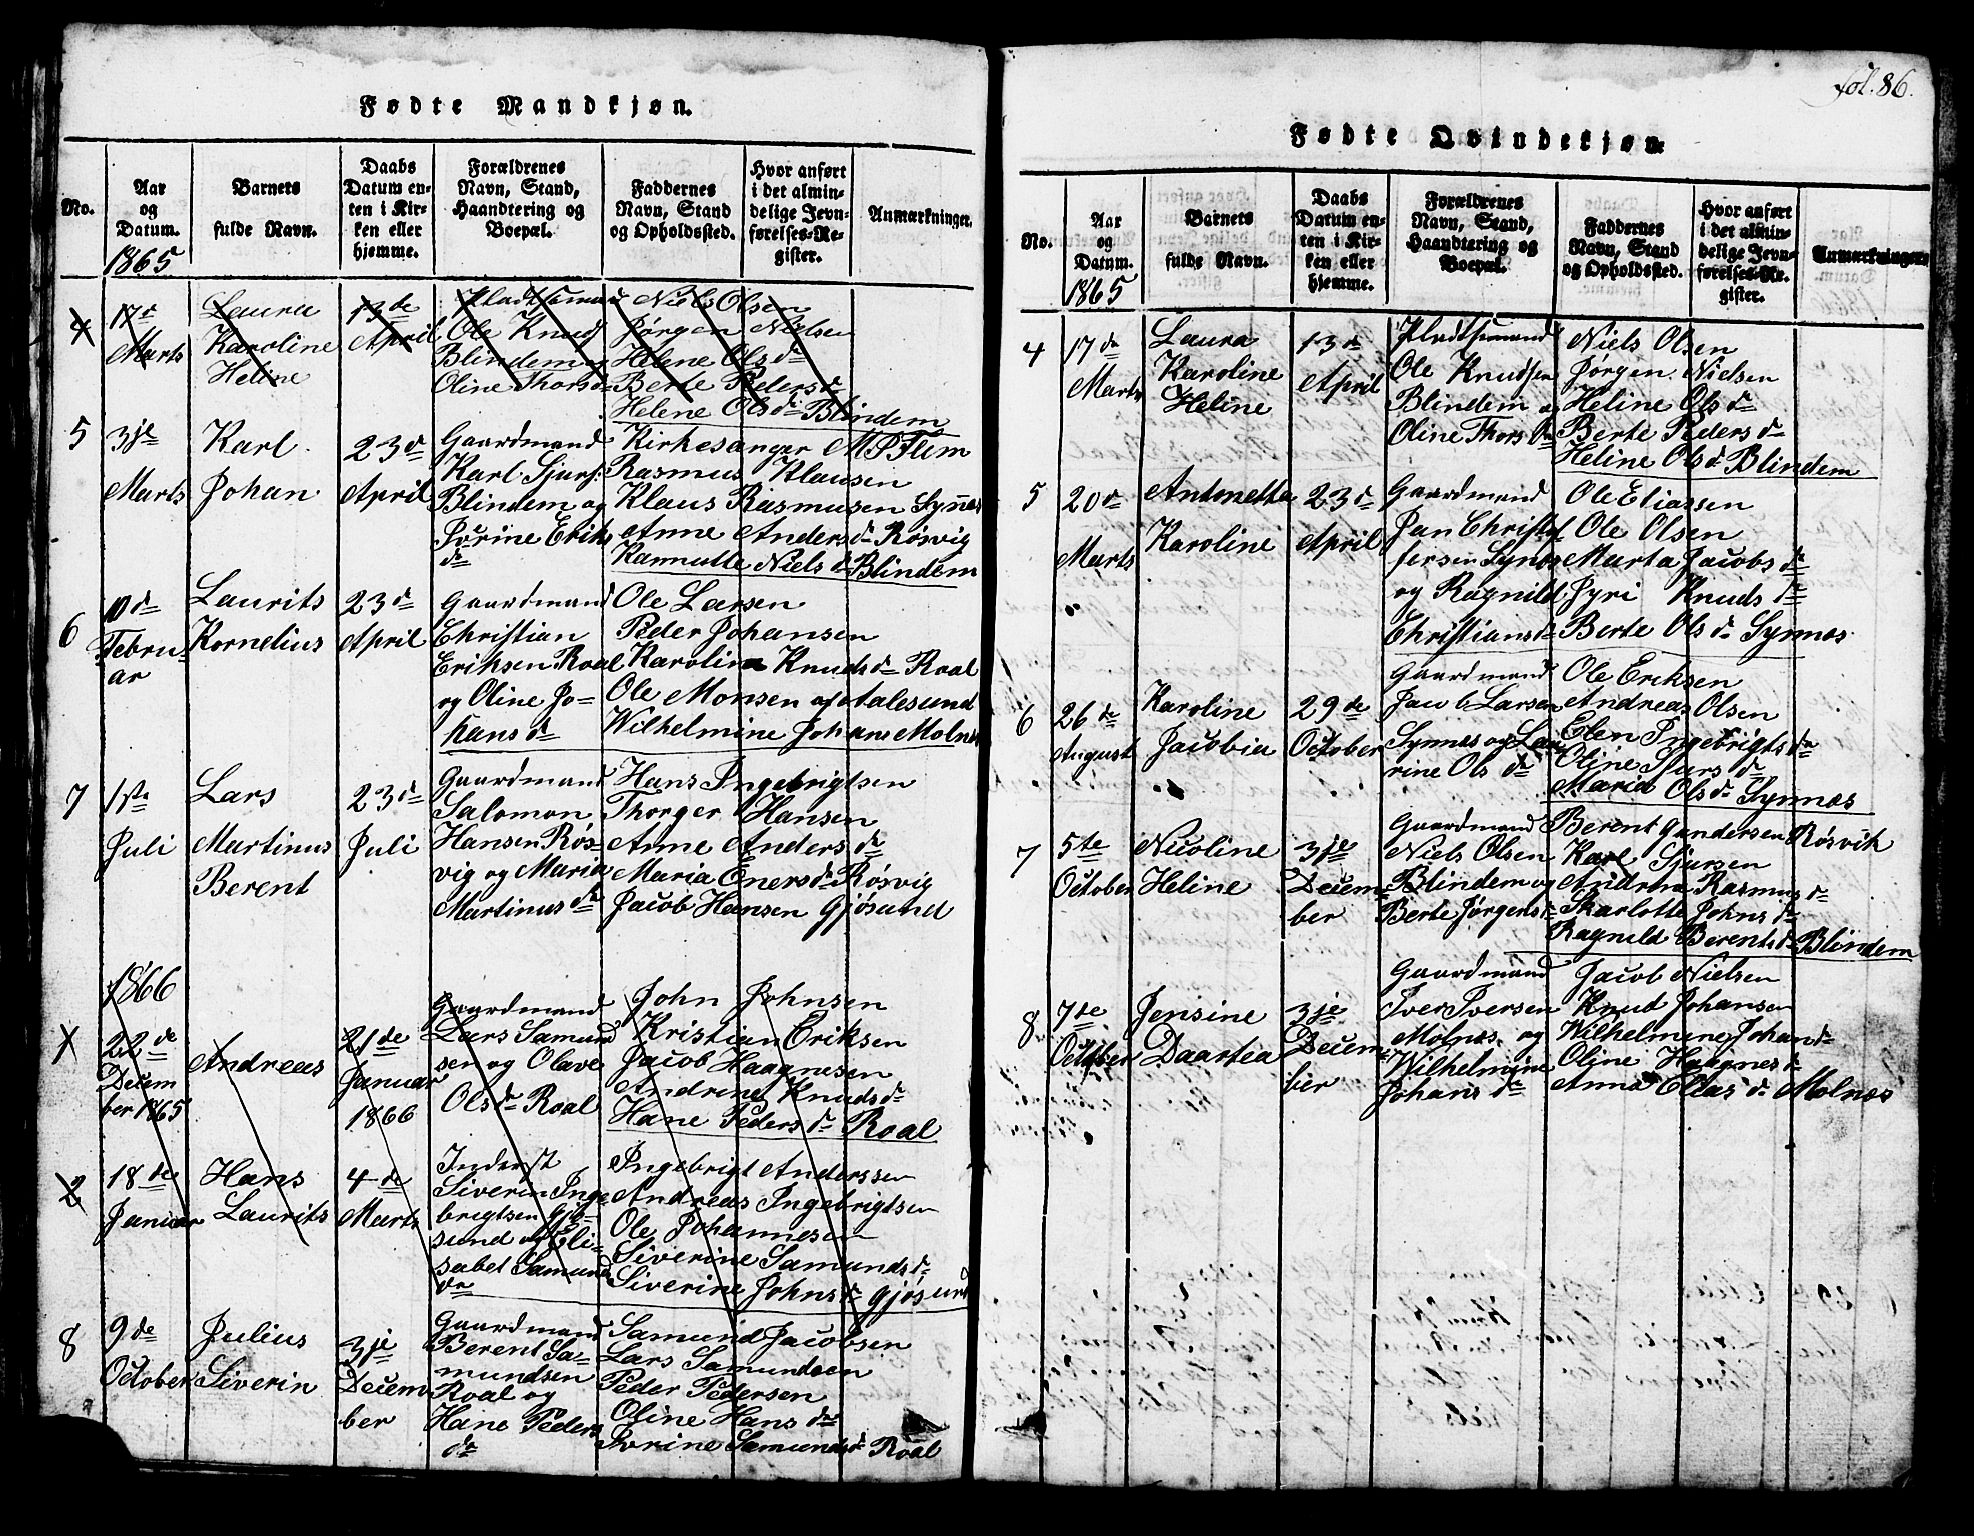 Fødte Mandkjøn.
No.
Aar og Datum.
Barnets fulde Navn.
Daabs Datum enten i Kirken eller hjemme.
Forældrenes Navn, Stand, Haandtering og Boepæl.
Faddernes Navn, Stand og Opholdssted.
Hvor anført i det almindelige Jevnførelses-Register.
Anmærkninger.
1865
4
17de
Marts
Laura
Karoline
Heline
13de
April
Pladsmand
Ole Knuds
Blindem og
Oline Thorsd
Niels Olsen
Jørgen Nielsen
Helene Olsdr
Berte Pedersdr
Helene Olsdr Blindem
5
3je
Marts
Karl
Johan
23d
April
Gaardmand
Karl Sjurs:
Blindem og
Jørine Eriks
dr
Kirkesanger M P Flem
Rasmus Klausen
Klaus Rasmusen Synæs
Anne Andersdr Røsvig
Kannutte Nielsdr Blindem
6
10de
Febru-
ar
Laurits
Kornelius
23de
April
Gaardmand
Christian
Eriksen Roal
og Oline Jo-
hansdr
Ole Larsen
Peder Johansen
Karolina Knudsdr Roal
Ole Monsen af Aalesund
Wilhelmine Johans Molnes
7
1ste
Juli
Lars
Martinus
Berent
23d
Juli
Gaardmand
Salomon
Hansen Røs-
vig og Maria
Martinusdr
Hans Ingebrigtsen
Thorger Hansen
Anne Andersdr
Maria Enersdr Røsvig
Jacob Hansen Gjøsund
1866
1
22de
Decem
ber 1865
Andreas
21de
Januar
1866
Gaardmand
Lars Samund
sen og Olave
Olsdr Roal
John Johnsen
Kristian Eriksen
Jacob Haagnesen
Andrine Knudsdr
Hane Pedersdr Roal
2
18de
Januar
Hans
Laurits
4de
Marts
Inderst
Siverin Inge
brigtsen Gjø-
sund og Eli-
sabet Samund
dr
Ingebrigt Anderssen
Andreas Ingebrigtsen
Ole Johannesen
Siverine Samundsdr
Siverine Johnsdr Gjøsund
8
9de
October
Julius
Siverin
3je
Decem
ber
Gaardmand
Berent Sa-
mundsen
Roal og
Hane Peders
dr
Samund Jacobsen
Lars Samundsen
Peder Pedersen
Oline Hansdr
Ivrine Samundsdr Roal
fol. 86.
Fødte Qvindekjøn.
No.
Aar og Datum.
Barnets fulde Navn.
Daabs Datum enten i Kirken eller hjemme.
Forældrenes Navn, Stand, Haandtering og Boepæl.
Faddernes Navn, Stand og Opholdssted.
Hvor anført i det almindelige Jevnførelses-Register.
Anmærkninger.
1865
4
17de
Marts
Laura
Karoline
Heline
13de
April
Pladsmand
Ole Knudsen
Blindem og
Oline Thorsdr
Niels Olsen
Jørgen Nielsen
Heline Olsdr
Berte Pedersdr
Heline Olsdr Blindem
5
20de
Marts
Antonetta
Karoline
23de
April
Gaardmand
Jan Christof
fersen Synæs
og Ragnild
Christiansdr
Ole Eliassen
Ole Olsen
Marta Jacobsdr
Jyri Knudsdr
Berte Olsdr Synnæs
6
26de
August
Karoline
Jacobia
29de
October
Gaardmand
Jacob Larsen
Synnæs og Lau
rine Olsdr
Ole Eriksen
Andreas Olsen
Elen Ingebrigtsdr
Oline Sjursdr
Maria Olsdr Synnæs
7
5te
October
Nicoline
Heline
3je
Decem-
ber
Gaardmand
Niels Olsen
Blindem og
Berte Jørgensdr
Berent Gundersen Røsvik
Karl Sjursen
Andrea Rasmusdr
Skarlotte Johnsdr
Ragnild Berentsdr Blindem
8
7de
October
Jensine
Daartea
3je
Decem-
ber
Gaardmand
Iver Iversen
Molnæs og
Wilhelmine
Johansdr
Jacob Nielsen
Knud Johansen
Wilhelmine Johandr
Oline Haagnesdr
Anna Eliasdr Molnæs